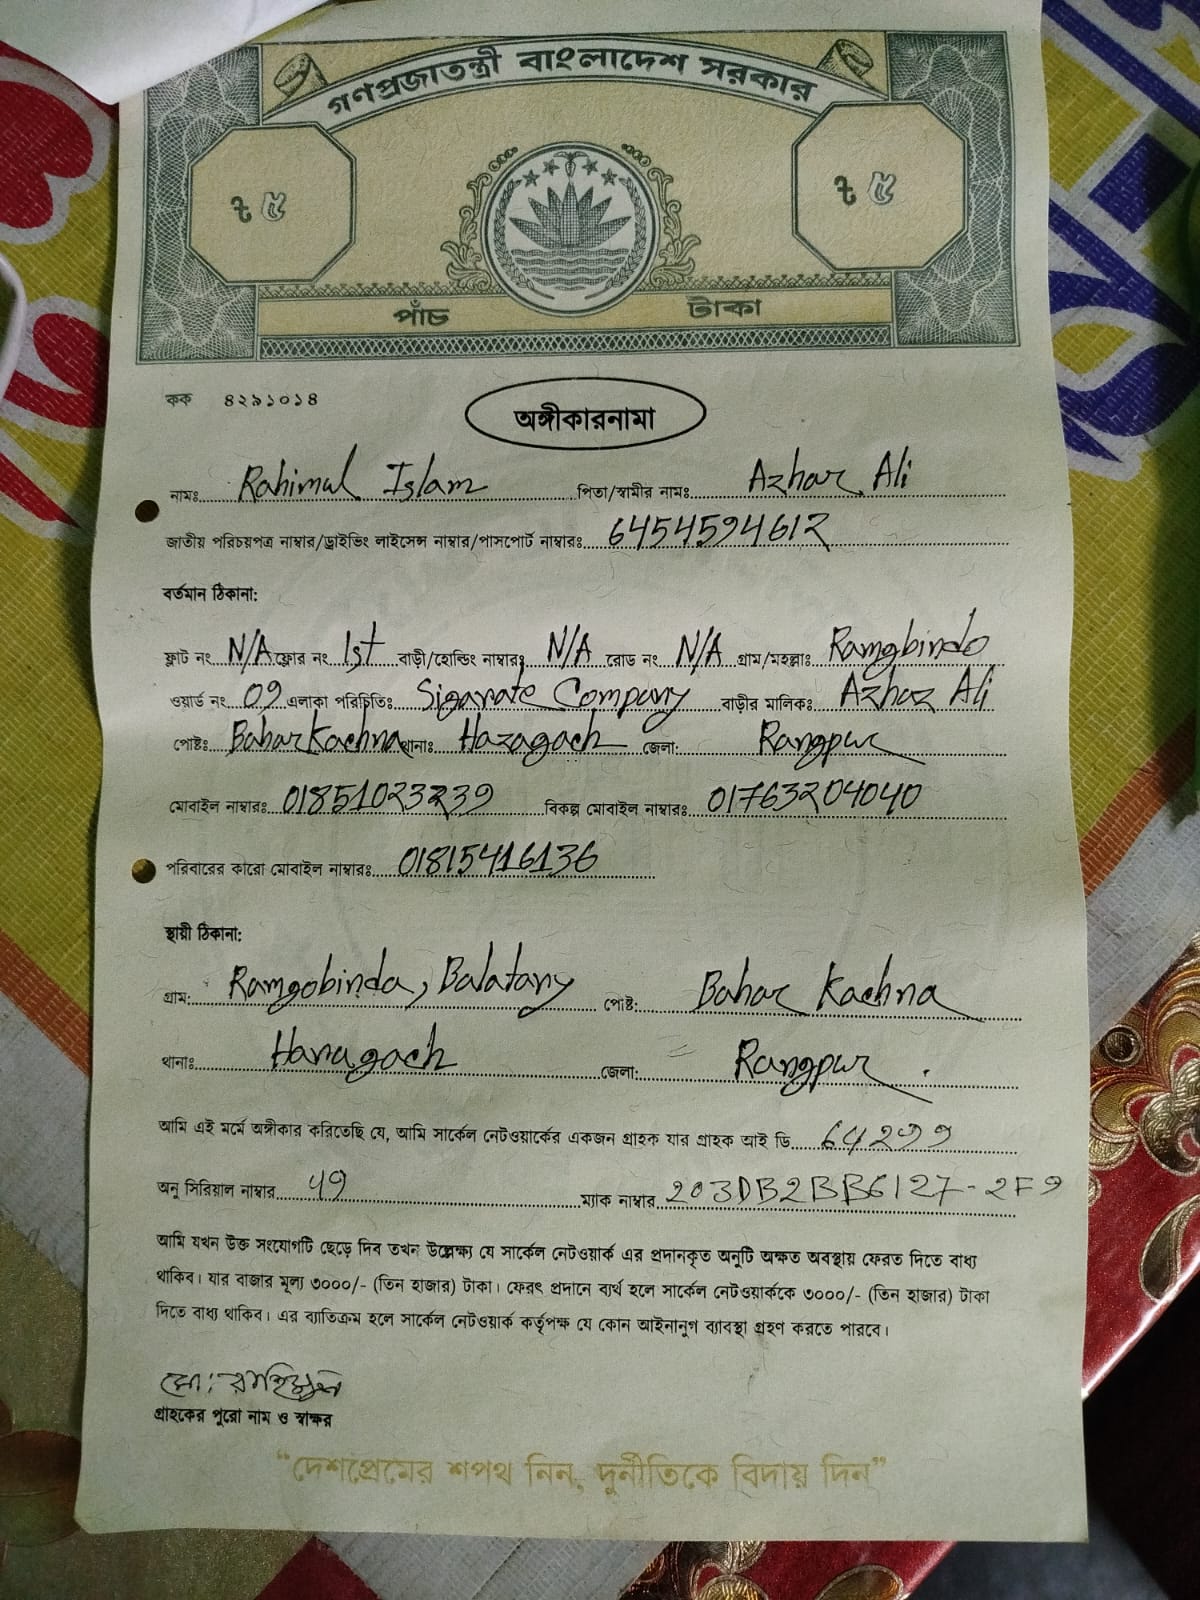 গণপ্রজাতন্ত্রী বাংলাদেশ সরকার
৳ ৫ ৳ ৫
পাঁচ টাকা
কক ৪২৯১০১৪
অঙ্গীকারনামা
নামঃ Rahimul Islam পিতা/স্বামীর নামঃ Azhar Ali
জাতীয় পরিচয়পত্র নাম্বার/ড্রাইভিং লাইসেন্স নাম্বার/পাসপোর্ট নাম্বারঃ 6454594612
বর্তমান ঠিকানা:
ফ্লাট নং N/A ফ্লোর নং 1st বাড়ী/হোল্ডিং নাম্বারঃ N/A রোড নং N/A গ্রাম/মহল্লাঃ Ramgbindo
ওয়ার্ড নং 09 এলাকা পরিচিতিঃ Sigarate Company বাড়ীর মালিকঃ Azhar Ali
পোষ্টঃ Bahar Kachna থানাঃ Haragach জেলা: Rangpur
মোবাইল নাম্বারঃ 01851023239 বিকল্প মোবাইল নাম্বারঃ 01763204040
পরিবারের কারো মোবাইল নাম্বারঃ 01815416136
স্থায়ী ঠিকানা:
গ্রাম: Ramgobinda, Balatary পোষ্ট: Bahar Kachna
থানাঃ Haragach জেলা: Rangpur.
আমি এই মর্মে অঙ্গীকার করিতেছি যে, আমি সার্কেল নেটওয়ার্কের একজন গ্রাহক যার গ্রাহক আই ডি 64299
অনু সিরিয়াল নাম্বার 49 ম্যাক নাম্বার 203DB2BB6127-2F9
আমি যখন উক্ত সংযোগটি ছেড়ে দিব তখন উল্লেক্ষ্য যে সার্কেল নেটওয়ার্ক এর প্রদানকৃত অনুটি অক্ষত অবস্থায় ফেরত দিতে বাধ্য
থাকিব। যার বাজার মূল্য ৩০০০/- (তিন হাজার) টাকা। ফেরৎ প্রদানে ব্যর্থ হলে সার্কেল নেটওয়ার্ককে ৩০০০/- (তিন হাজার) টাকা
দিতে বাধ্য থাকিব। এর ব্যাতিক্রম হলে সার্কেল নেটওয়ার্ক কর্তৃপক্ষ যে কোন আইনানুগ ব্যাবস্থা গ্রহণ করতে পারবে।
মো: রাহিমুল
গ্রাহকের পুরো নাম ও স্বাক্ষর
“দেশপ্রেমের শপথ নিন, দুর্নীতিকে বিদায় দিন”